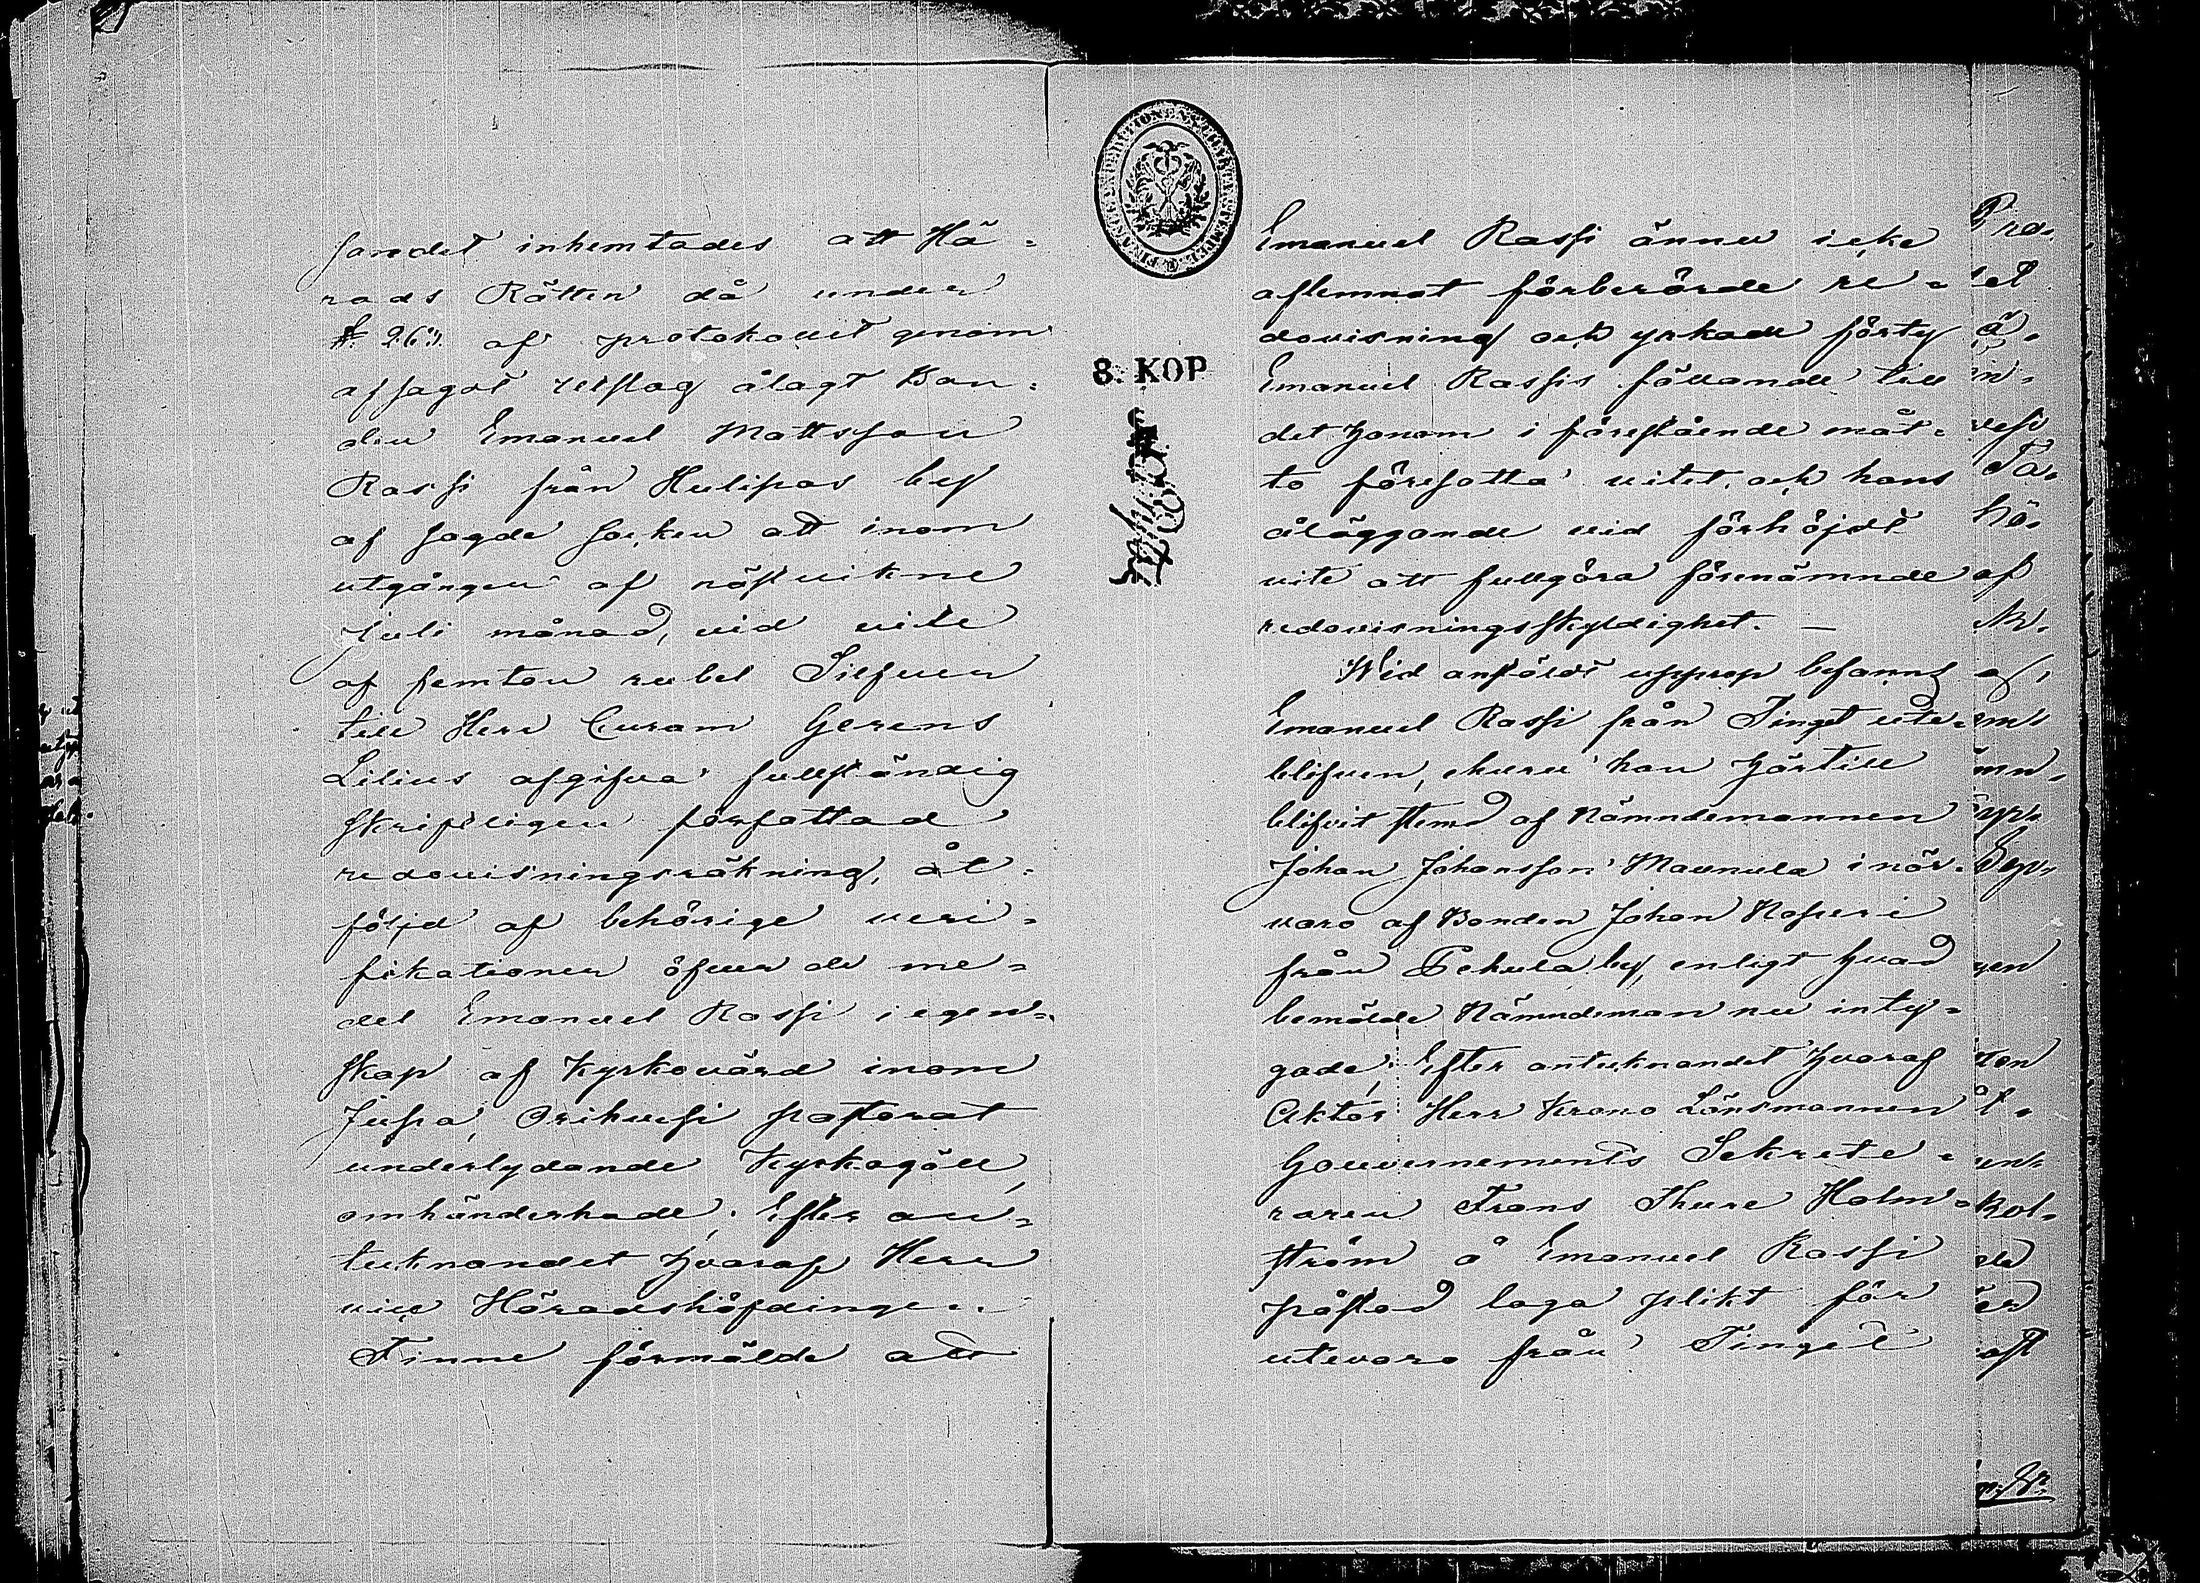 sandet inhemtades att Hä-
rads Rätten då under
§ 26. af protokollet genom
afsagdt utslag ålagt Bon-
den Emanuel Mattsson
Rassi från Hulipas by
af sagde Socken att inom
utgången af nästvikne
Juli månad, vid vite
af femton rubel Silfver
till Herr Curam Gerens
Lilius afgifva fullständig
skriftligen författad
redovisningsräkning, åt-
följd af behörige veri-
fikationer öfver de me-
del Emanuel Rassi i egen-
skap af Kyrkovärd inom
Juupa, Orihvesi pastorat
underlydande Kyrkogäll,
omhänderhade; Efter an-
tecknandet hvaraf Herr
vice Häradshöfdingen
Finne förmälde att
FINANCE EXPEDITIONENS CHARTÆ STEMPEL
8. KOP
Emanuel Rassi ännu icke
aflemnat förberörde re-
dovisning och yrkade förty
Emanuel Rassis fällande till
det honom i förestående måt-
to föresatta vitet, och hans
åläggande vid förhöjdt
vite att fullgöra förenämnde
redovisningsskyldighet. —
Wid anstäldt upprop befanns
Emanuel Rassi från Tinget ute-
blifven, churu han härtill
blifvit stemd af Nämndemannen
Johan Johansson Maunula i när-
varo af Bonden Johan Kaperi
från Pehula by, enligt hvad
bemälde Nämndeman nu inty-
gade; Efter antecknandet hvaraf
Aktor Herr Krono Länsmannen
Gouvernements Sekrete-
raren Frans Thure Holm-
ström å Emanuel Rassi
påstod laga plikt för
utevaro från Tinget